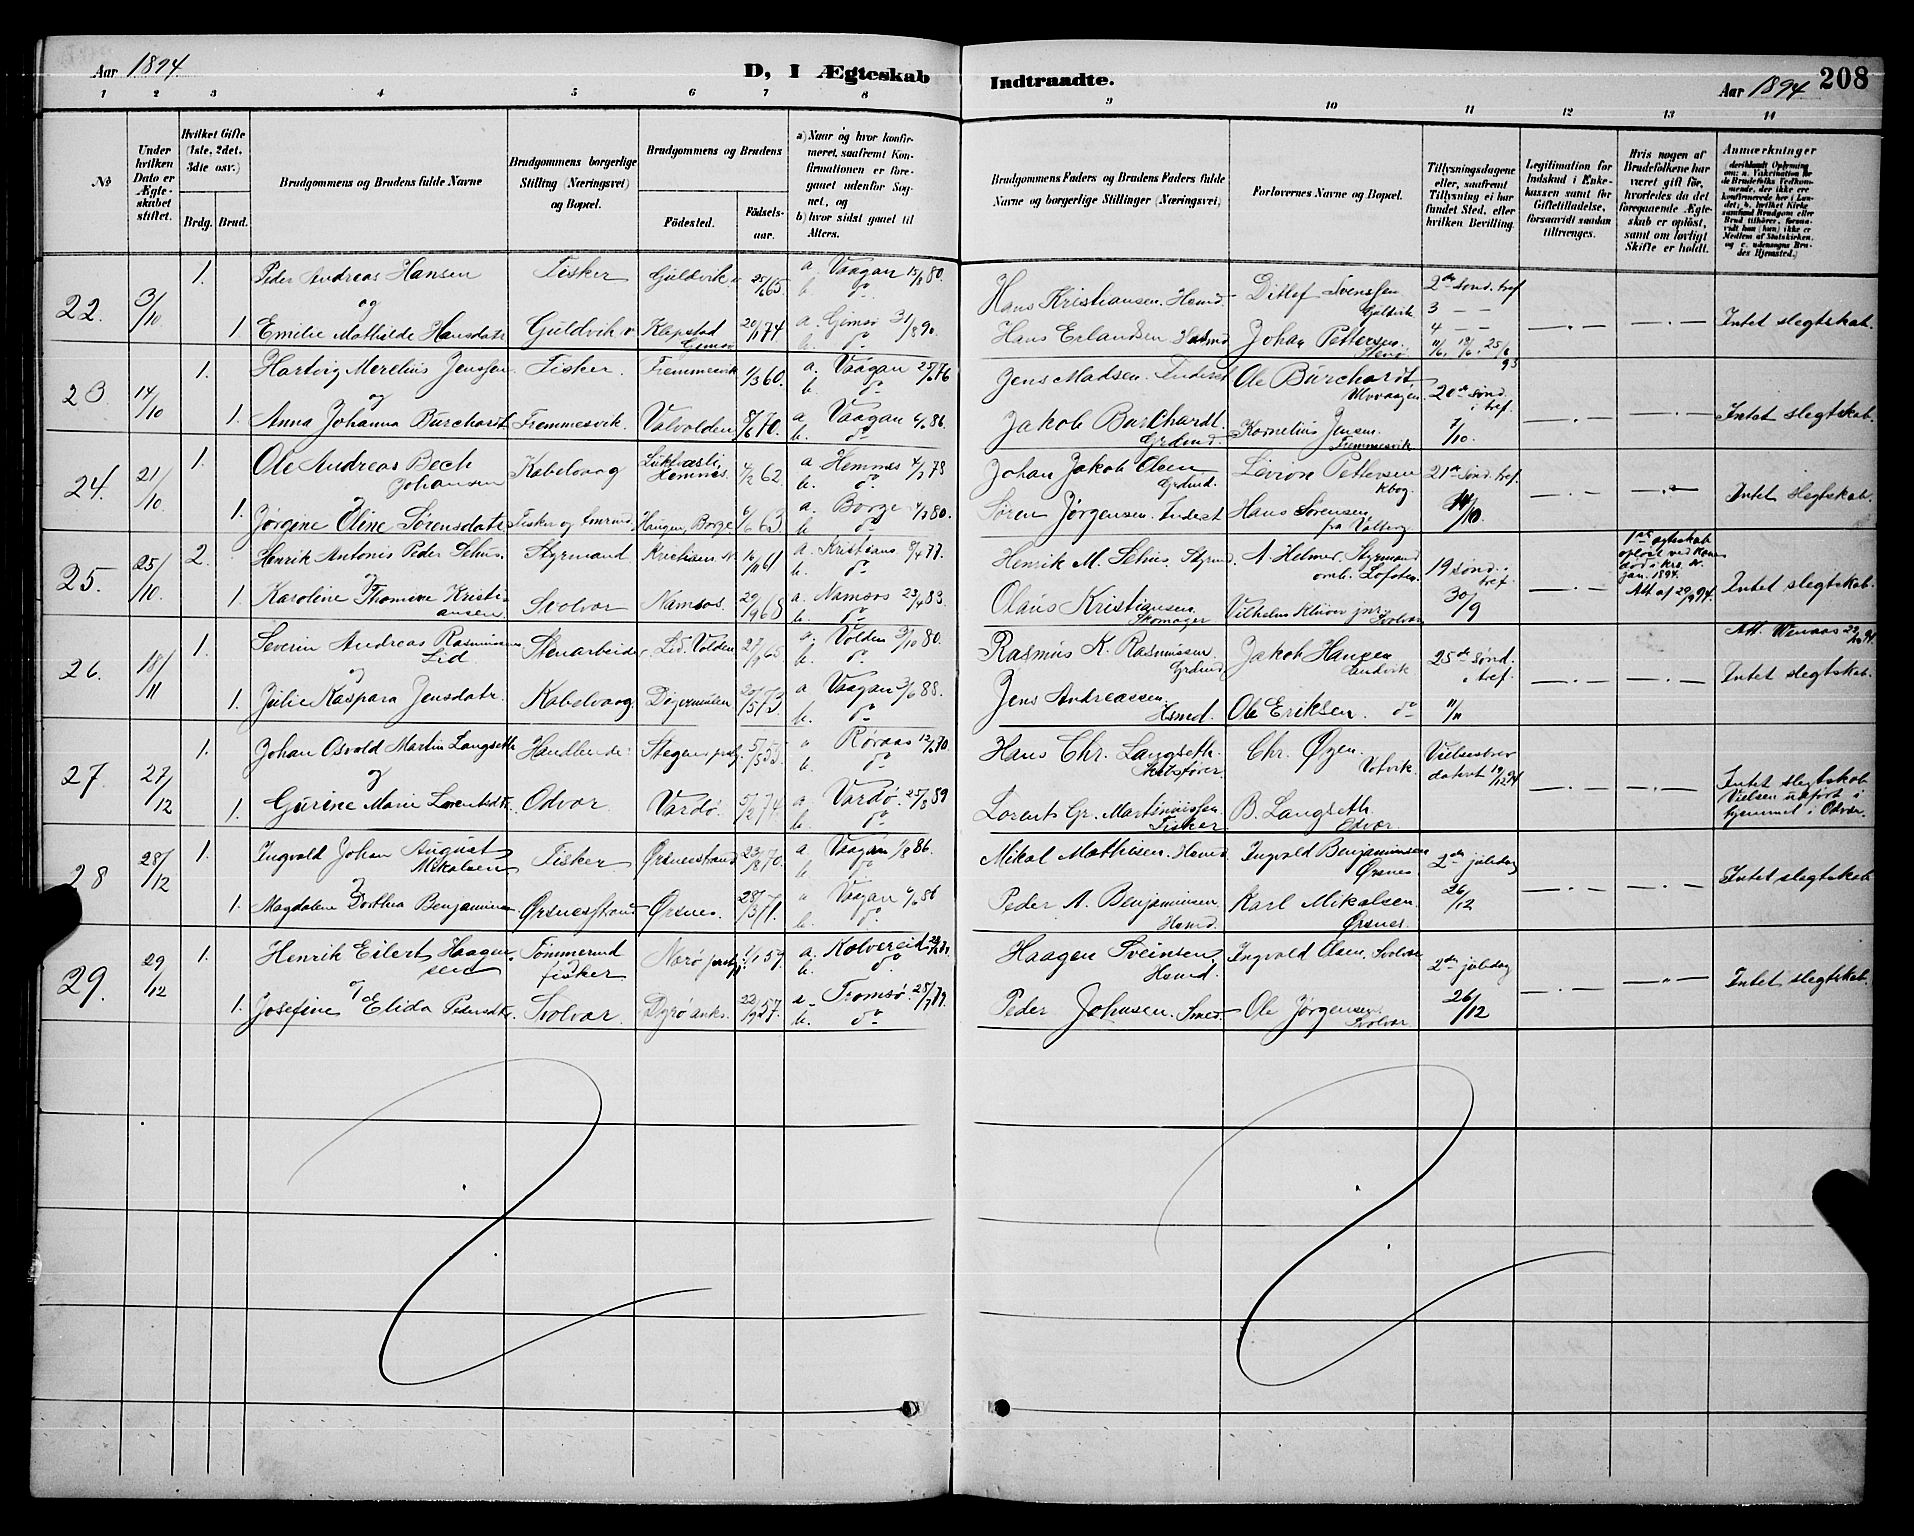 Aar 1894
D, I Ægteskab
Indtraadte.
Aar 1894
208
1 2 3 4 5 6 7 8
9 10 11 12 13 14
No
Under hvilken Dato er Ægteskabet stiftet.
Hvilket Gifte (1ste, 2det, 3die osv.)
Brdg. Brud.
Brudgommens og Brudens fulde Navne
Brudgommens borgerlige Stilling (Næringsvei) og Bopæl.
Brudgommens og Brudens
Fødested.
Fødselsaar.
a) Naar og hvor konfirmeret, saafremt Konfirmationen er foregaaet udenfor Sognet, og
b) hvor sidst gaaet til Alters.
Brudgommens Faders og Brudens Faders fulde Navne og borgerlige Stillinger (Næringsvei)
Forlovernes Navne og Bopæl.
Tillysningsdagene eller, saafremt Tillysning ei har fundet Sted, efter hvilken Bevilling.
Legitimation for Indskud i Enkekassen samt for Giftetilladelse, forsaavidt saadan tiltrænges.
Hvis nogen af Brudefolkene har været gift før, hvorledes da det foregaaende Ægteskab er opløst, samt om lovligt Skifte er holdt.
Anmærkninger
22. 3/10 1. Peder Andreas Hansen Fisker Guldvik 25/1 65 a. Vaagan 15/8 80.
og b. do
1. Emilie Mathilde Hansdatr Guldvik Klepstad Gimsø 20/11 74 a. Gimsø 31/8 90.
b. do
Hans Kristiansen Hsmd. Ditlef Svenssen Guldvik 2den sønd. tref
3 — —
Hans Erlandsen Johan Pettersen 4 — — 11/6, 18/6, 25/6 93 — . — — . — Intet slegtskab.
23 14/10 1. Hartvig Merelius Jenssen Fisker. Fremmesvik 1/3 60. a. Vaagan 25/6 76
og b. do
1. Anna Johanna Burchardt Fremmesvik. Valvolden 8/6 70. a. Vaagan 6/6 86.
b. do
Jens Madsen. Inderst Ole Burchardt, Ulvvaagen. 20de sønd. i tref.
Jakob Burchardt. Grdmd. Kornelius Jensen. Fremmesvik 7/10. — . — — . — Intet slegtskab.
24. 21/10 1. Ole Andreas Bech Johansen Kabelvaag Hemnes. 4/2 62. a. Hemnes 78
b. do
1. Jørgine Eline Sørensdatr Fisker og Haugen, Borge 6/6 63 a. Borge 4/7 80.
b. do
Johan Jakob Olsen Grdmd. Pettersen Kbvg. 21de sønd. tref.
Søren Jørgensen. Inderst Hans Sørensen fra Valberg. 14/10. — . — — . — Intet slegtskab.
25. 25/10. 2. Henrik Antonis Peder Schus. Styrmand Kristians. N 16/11 61 a. Kristians 8/4 77.
og b. do
1. Karoline Thomine Kristiansen Svolvær Namsos. 29/9 68 a. Namsos 23/4 83.
b. do
Henrik M. Schus, Styrmd A. Helmer. Styrmand omb. Lofoten. 19 sønd. i tref.
Olaus Kristiansen Skomager Vilhelm Kluver jnr. Svolvær 30/9 — . —
1ste egteskab opløst ved Konens død i Krs. N. jan. 1894. Att af 29/9 94.
Intet slegtskab.
26. 18/11 1. Severin Andreas Rasmussen Lid Stenarbeider, Lid. Volden 27/9 65 a. Volden 3/10 80.
og b. do
1. Julie Kaspara Jensdatr. Kabelvaag Digermulen 20/5 73 a Vaagan 3/6 88.
b. do
Rasmus K. Rasmussen. Grdmd Jakob Hansen Sandvik 25de sønd. i tref.
Jens Andreassen. Hsmd. Ole Eriksen. do 11/11 — . — — . —
Att. 22/10 94.
Intet slegtskab.
27. 27/12 1. Johan Osvold Martin Langseth Handlende Stegen 5/5 55 a Røraas 12/6 70.
og b. do
1. Gurine Marie Lorentsdtr. Odvær Vardø. 5/2 74. a. Vardø. 25/8 89
b. do
Hans Chr. Langseth. Skibsfører. Chr. Øgen. Votvik. Vielsesbrev datert 19/12 94
Lorents Gr. Martinussen Fisker. B. Langseth Odvær. — . — — . —
Intet slegtskab. Vielsen udført i hjemmet i Odvær.
28 28/12 1. Ingvald Johan August Mikalsen Fisker Ørsnesstrand 23/8 70. a. Vaagan 1/8 86.
og b. do
1. Magdalene Dorthea Benjaminsen Ørsnesstrand Ørsnes. 28/3 71. a Vaagan 6/6 86
b. do
Mikal Mathisen Hsmd Ingvald Benjaminsen Ørsnes. 2den juledag
Peder A. Benjaminsen Hsmd. Karl Mikalsen. Ørsnes 26/12 — . — — . — Intet slegtskab
29. 29/12 1. Henrik Eilert Haagensen Tømmermd fisker Nærø prstg. 57. a. Kolvereid
og b. do
1. Josefine Elida Pedersdtr. Svolvær. Dyrø anks. 22/9 57. a. Tromsø. 25/7 79.
b. do
Haagen Sveinsen Hsmd. Ingvald Olsen, Svolvær 2den juledag
Peder Johnsen. Smed. Ole Jørgensen Svolvær. 26/12 — . — — . — Intet slegtskab.